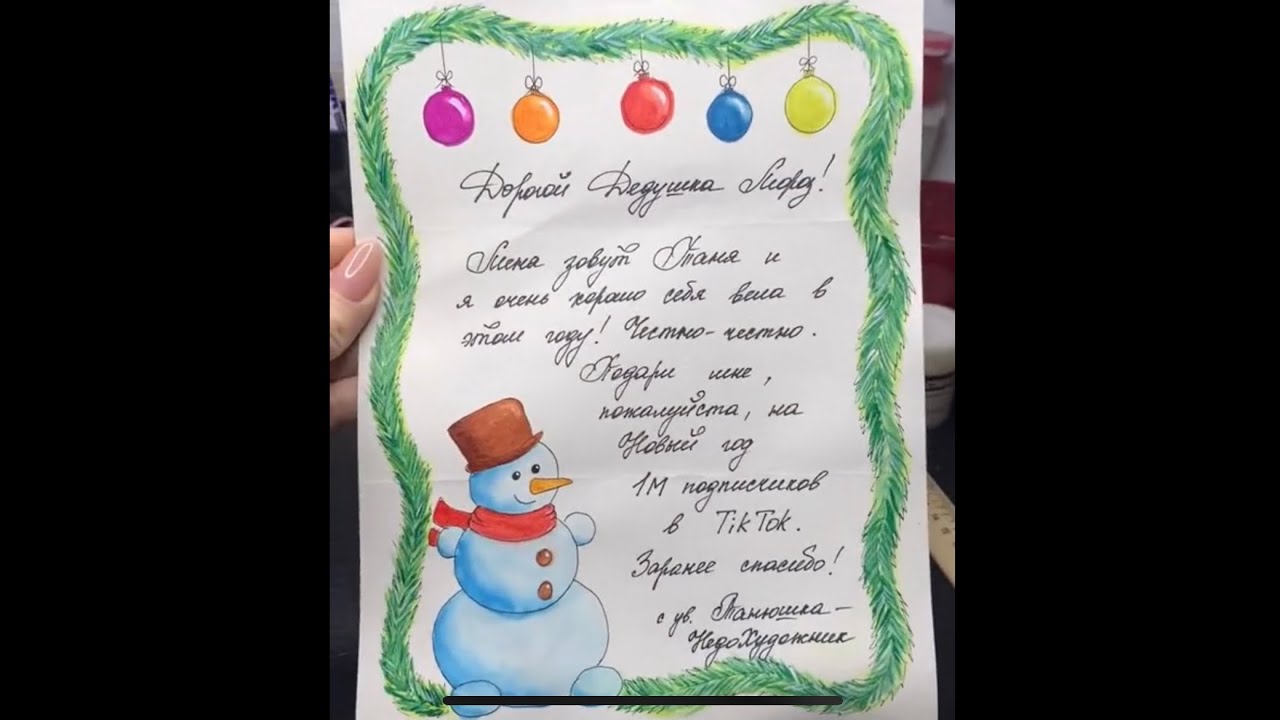 Дорогой Дедушка Мороз!
Меня зовут Таня и
я очень хорошо себя вела в
этом году! Честно-честно.
Подари мне,
пожалуйста, на
Новый год
1М подписчиков
в TikTok.
Заранее спасибо!
с ув. Танюшка-
НедоХудожник